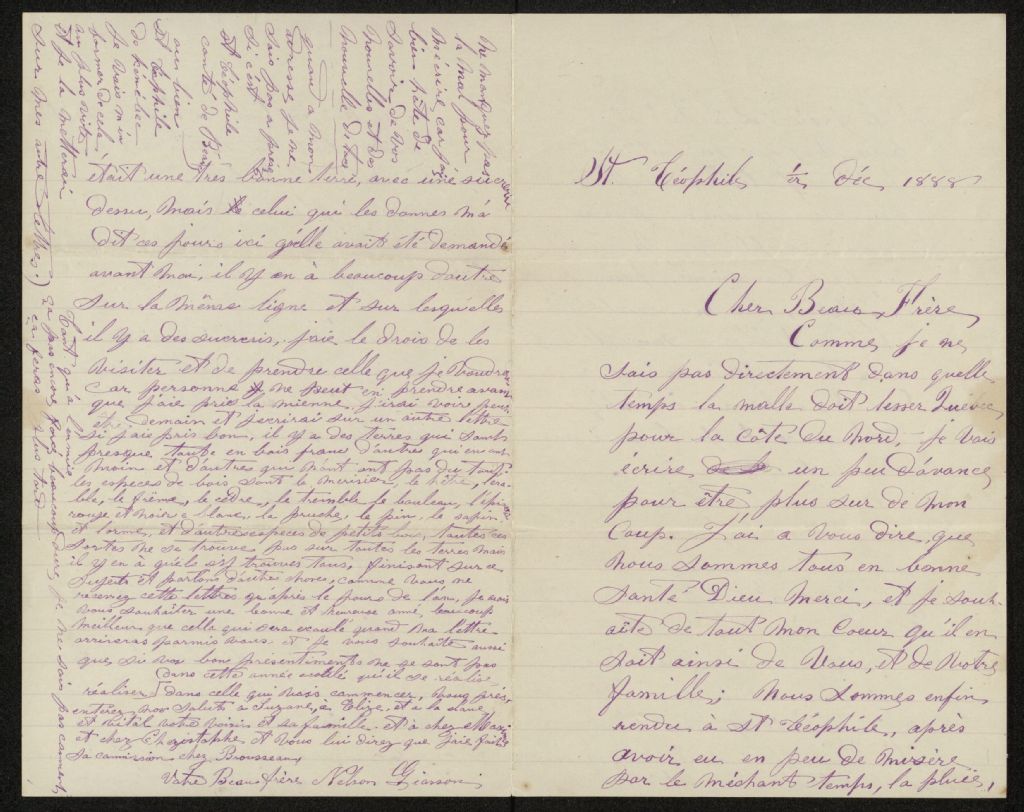 St. Téophile 1er Déc 1888
Cher Beau Frère,
Comme je ne
sais pas directement dans quelle
temps la malle doit lesser Quebec
pour la côte du Nord, je vais
écrire un peu d'avance
pour être plus sur de mon
Coup. J'ai a vous dire que
nous sommes tous en bonne
santé Dieu merci, et je souh-
aite de tout mon Coeur qu'il en
soit ainsi de Vous, et de Votre
famille; Nous sommes enfin
rendu à St Téophile, après
avoir eu en peu de misère
par le méchant temps, la pluie,
était une très bonne terre, avec une sucrerie
dessu, mais celui qui les donnes m'a
dit ces jours ici qelle avait été demandé
avant moi, il y en à beaucoup dautre
sur la même ligne et sur lesquelles
il y a des sucreris, jaie le drois de les
visiter et de prendre celle que je voudrez
car personne ne peut en prendre avan
que jaie pris la mienne, jirai voir peut
être demain et jecrirai sur un autre lettre
si jaie pris bon, il y a des terres qui sonts
presque toute en bois franc d'autres qui en ont
moin et d'autres qui n'ont ont pas du tout,
les especes de bois sont le merisier, le hêtre, lera-
ble, le frêne, le cèdre, le tremble le bouleau, l'épinette
rouge et noir e blanc, la pruche, le pin, le sapin
et lorme, et d'autres especes de petits bois, toutes ces
sortes ne se trouve pas sur toutes les terres mais
il y en à qu'ele s'y trouves tous, finisont sur ce
sujets et partons dautres choses, comme vous ne
recevez cette lettres qu'après le jour de l'an, je vais
vous souhaiter une bonne et heureuse anné, beaucoup
meilleur que cella qui sera ecoulé quand ma lettre
arriveras parmis vous. et je vous souhaite aussi
que si vos bon présentiments ne se sont pas
(dans cette année ecoulé qu'il se réalise
réaliser dans celle qui vais commencer,
enterez nos saluts à Suzane, a Elize, et à la
et Vital votre voisin et sa famille. et à chez
et chez Christophe et vous lui direz que jaie fait
sa commission chez Brousseau,
Votre Beau frère Nelson Giasson
ne manquez pas
la mal pour
m'écrire car jai
bien hâte de
savoir de vos
nouvelles et des
nouvelle de tous
quand a mon
adresse je ne
sais pas a présent
si c'est
St Téophile
comté de
ou bien
St Téophile
de
Je vais m'in
former de cela
au plus vite
et je la metterai
sur mes autre lettres.)
Tant qu'à l'ennuis
ça pas encore forcé beaucoup dure, je ne sais pas comment
ça feras plus tard